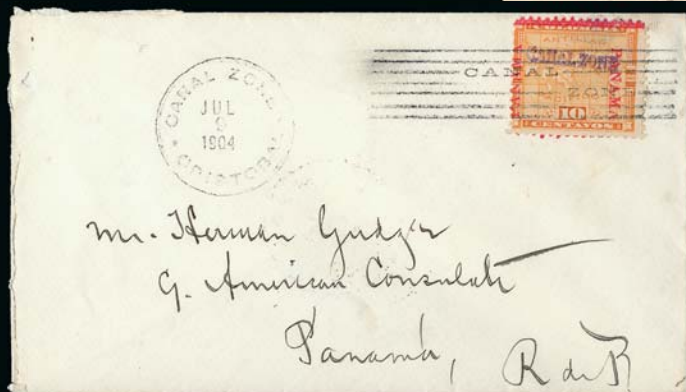 CANAL ZONE
JUL
9
1904
CRISTOBAL
CANAL ZONE
PANAMA
PANAMA
10
CENTAVOS
CANAL
ZONE
Mr. Herman Gudger
G. American Consulate
Panamá,
R de P